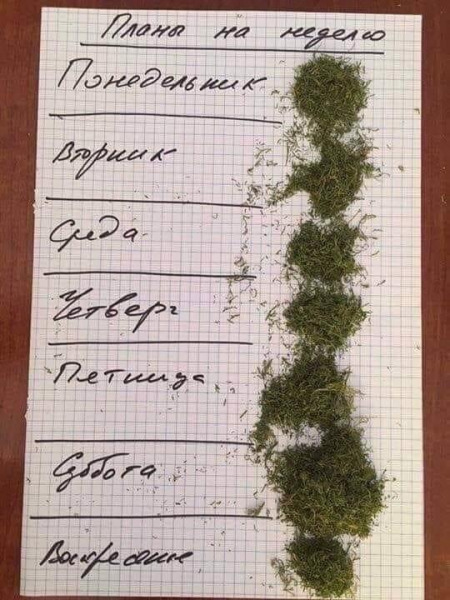 Планы на неделю
Понедельник
Вторник
Среда
Четверг
Петница
Суббота
Воскресение